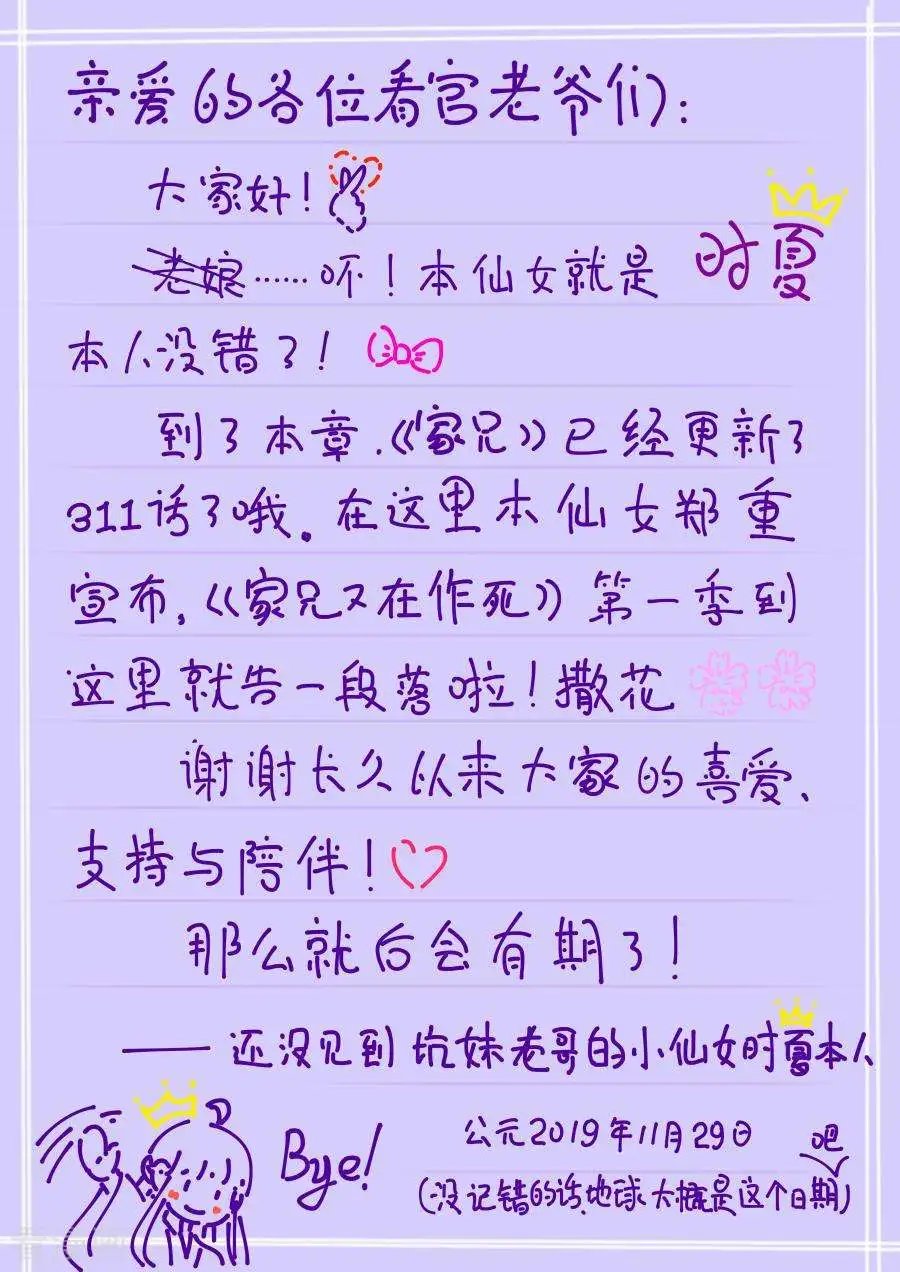 亲爱的各位看官老爷们:
大家好!
老娘……呸!本仙女就是 时夏
本人没错了!
到了本章.《家兄》已经更新了
311话了哦。在这里本仙女郑重
宣布,《家兄又在作死》第一季到
这里就告一段落啦!撒花
谢谢长久以来大家的喜爱、
支持与陪伴!
那么就后会有期了!
——还没见到坑妹老哥的小仙女时夏本人
Bye!
公元2019年11月29日
(没记错的话,地球大概是这个日期吧)